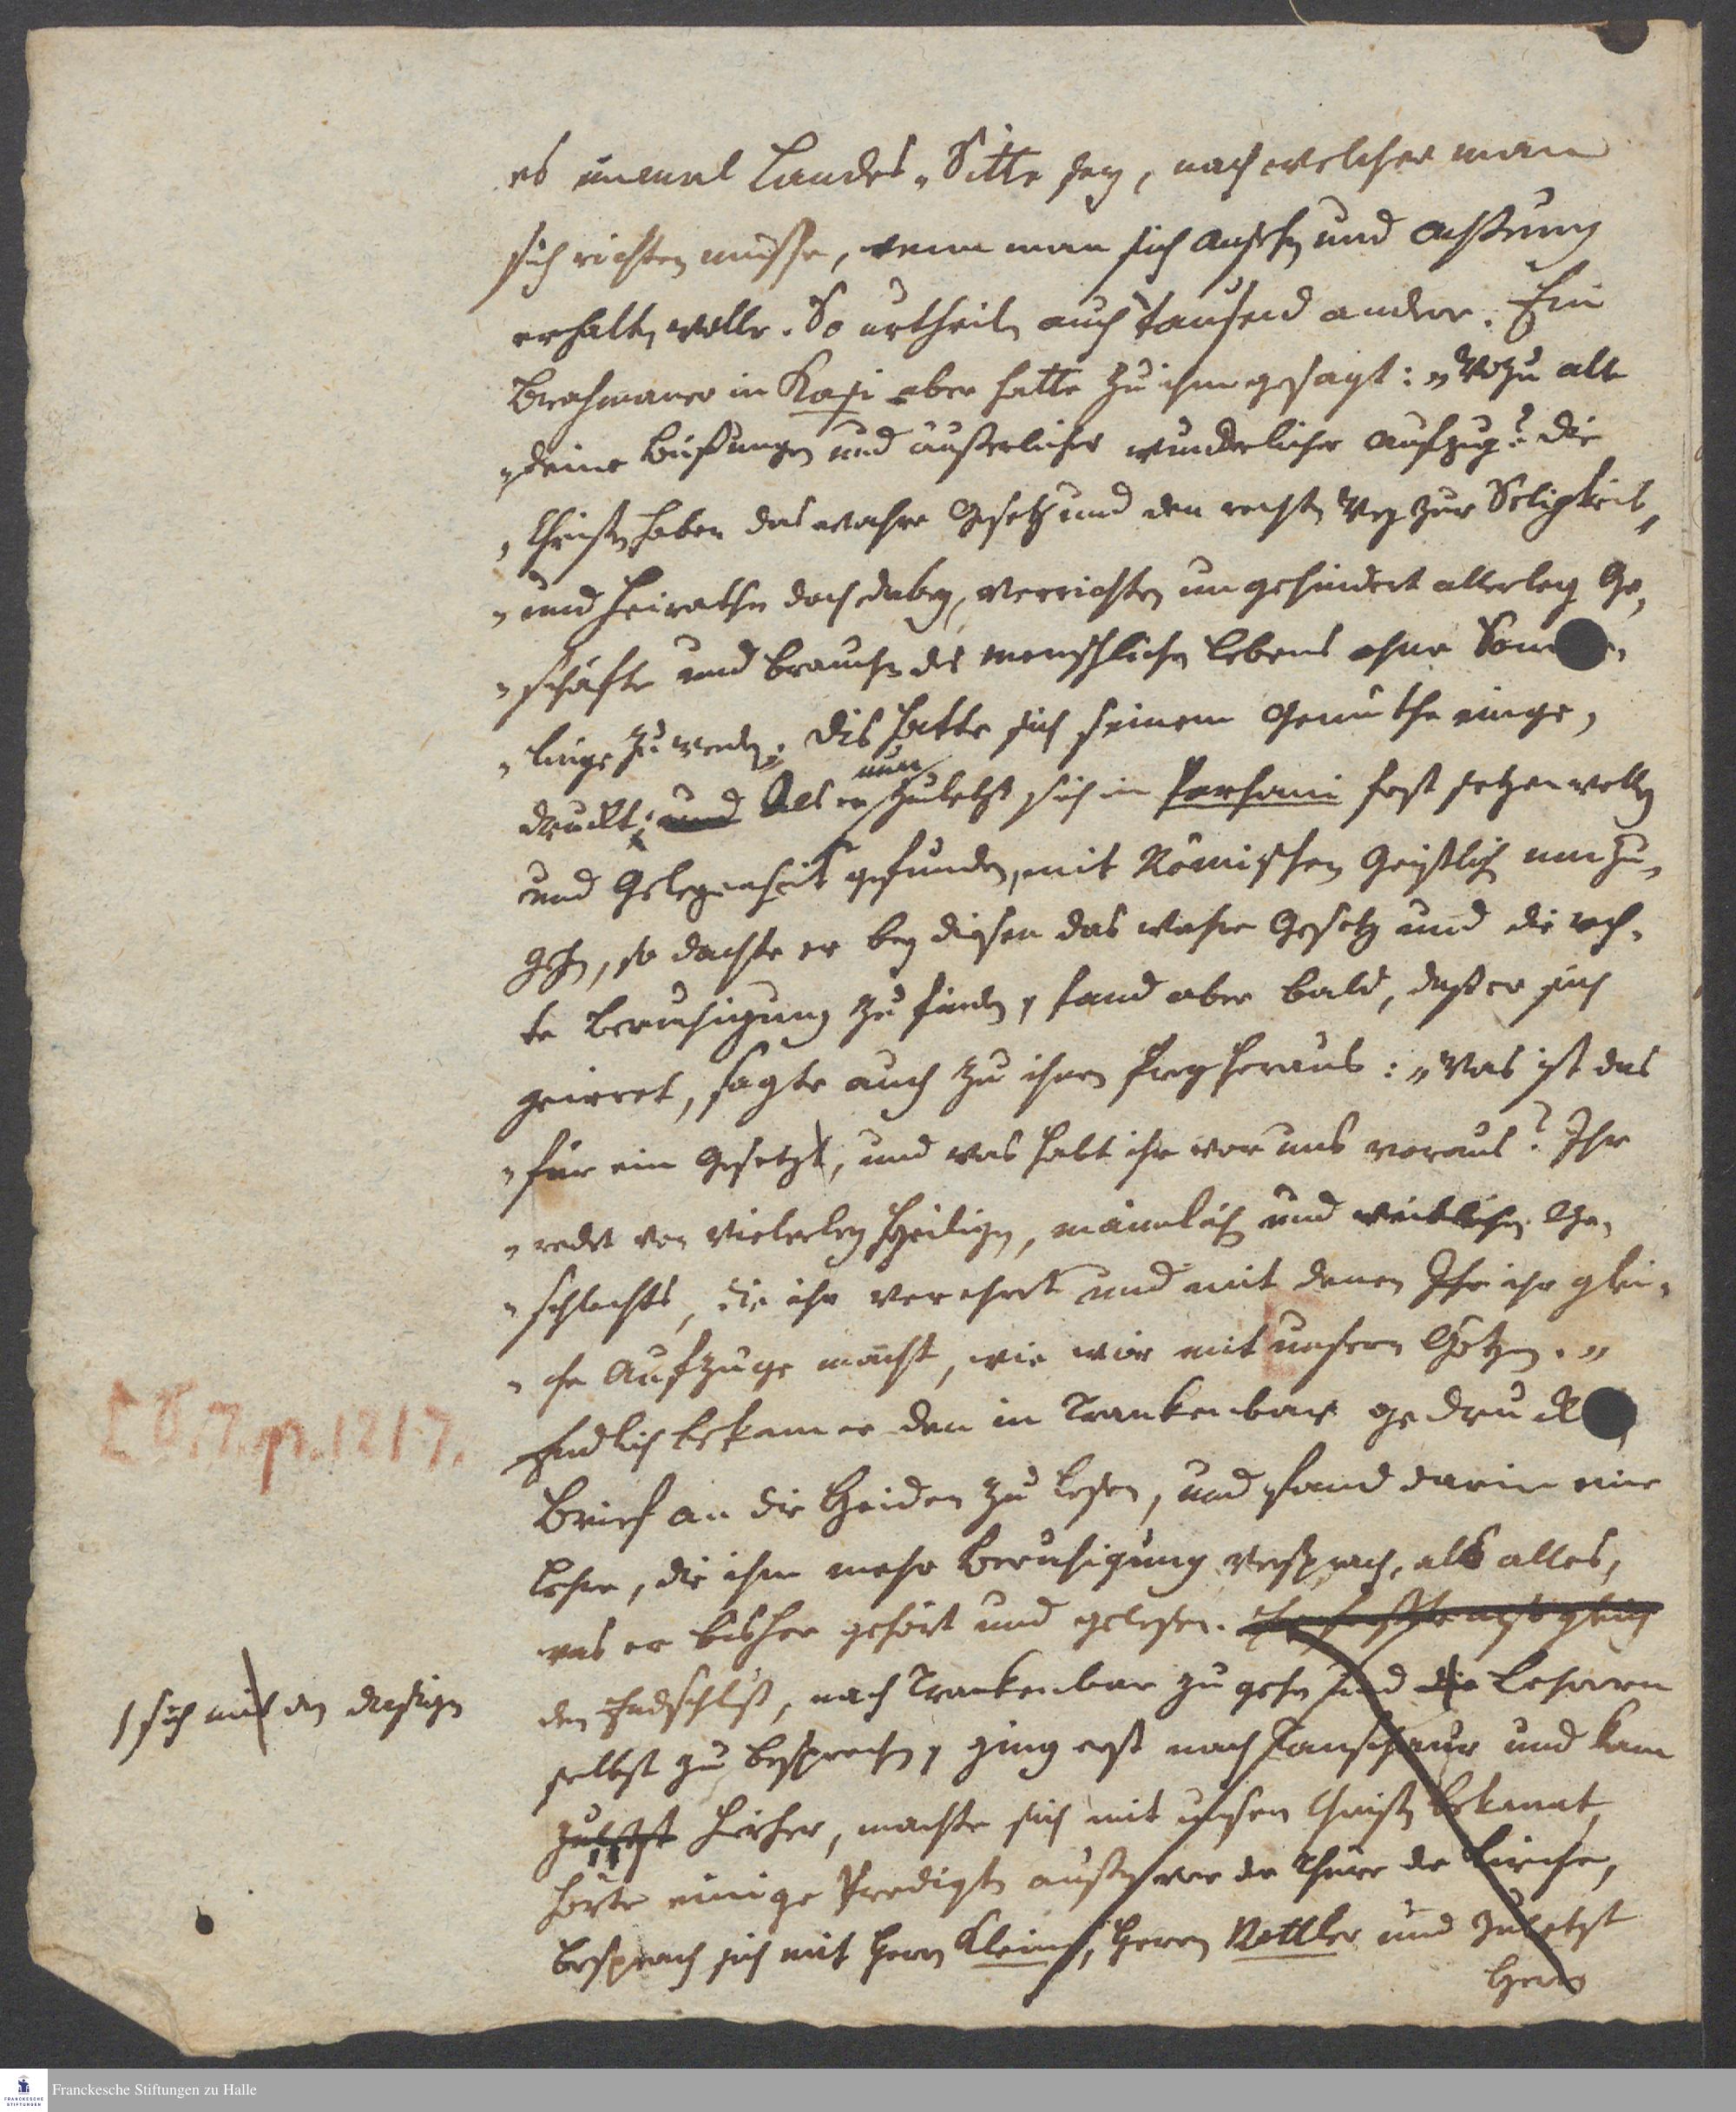 es einmal Landes-Sitte sey, nach welcher man
sich richten müsse, wenn man sich Ansehn und Achtung
erhalten wolle. So urtheilen auch tausend andere. Ein
Brahmaner in Kasi aber hatte zu ihm gesagt: „Wozu alle
„deine Büßungen und äußerlicher wunderlicher Aufzug? Die
„Christen haben das wahre Gesetz und den rechten Weg zur Seligkeit,
„und heirathen doch dabey, verrichten ungehindert allerley Ge-
„schäfte und brauchen des menschlichen Lebens ohne
„linge zu werden. Dis hatte sich seinem Gemüthe einge-
druckt; und Als er nun zuletzt sich in Parsani fest setzen wollen
und Gelegenheit gefunden, mit Römischen Geistlichen umzu-
gehen, so dachte er bey diesen das wahre Gesetz und die rech-
te Beruhigung zu finden, fand aber bald, daß er sich
geirret, sagte auch zu ihnen frey heraus: „Was ist das
„für ein Gesetz, und was habt ihr vor uns voraus? Ihr
„redet von vielerley Heiligen, männlichen und weiblichen Ge-
„schlechts, die ihr verehret und mit denen Ihr glei-
„che Aufzüge macht, wie wir mit unsern Götzen.„
[ 67. p. 1217.
Endlich bekam er den in Trankenbar
Brief an die Heiden zu lesen, und fand darin eine
Lehre, die ihm mehr Beruhigung versprach, als alles,
was er bisher gehört und gelesen.
sich mit den dasigen
den Endschluß, nach Trankenbar zu gehn und die Lehrern
selbst zu besprechen, ging erst nach Tanschaur und kam
zuletzt hierher, machte sich mit unsern Christen bekannt,
hörte einige Predigten außen vor der Thüre der Kirche,
besprach sich mit Herrn Klein, Herrn Rottler und zuletzt
Herrn
Franckesche Stiftungen zu Halle
FRANCKESCHE
STIFTUNGEN